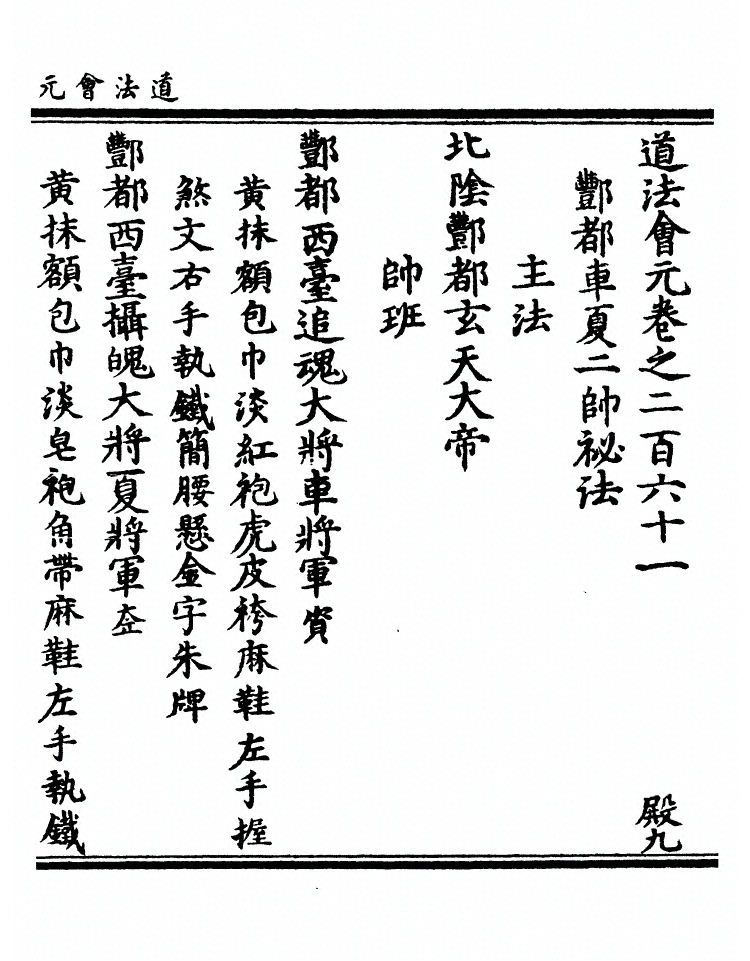 道法會元
道法會元卷之二百六十一 殿九
酆都車夏二帥祕法
主法
北陰酆都玄天大帝
帥班
酆都西臺追魂大將車將軍
黃抹額包巾淡紅袍虎皮袴麻鞋左手握
煞文右手執鐵簡腰懸金字朱牌
酆都西臺攝魄大將夏將軍
黃抹額包巾淡皂袍角帶麻鞋左手執鐵